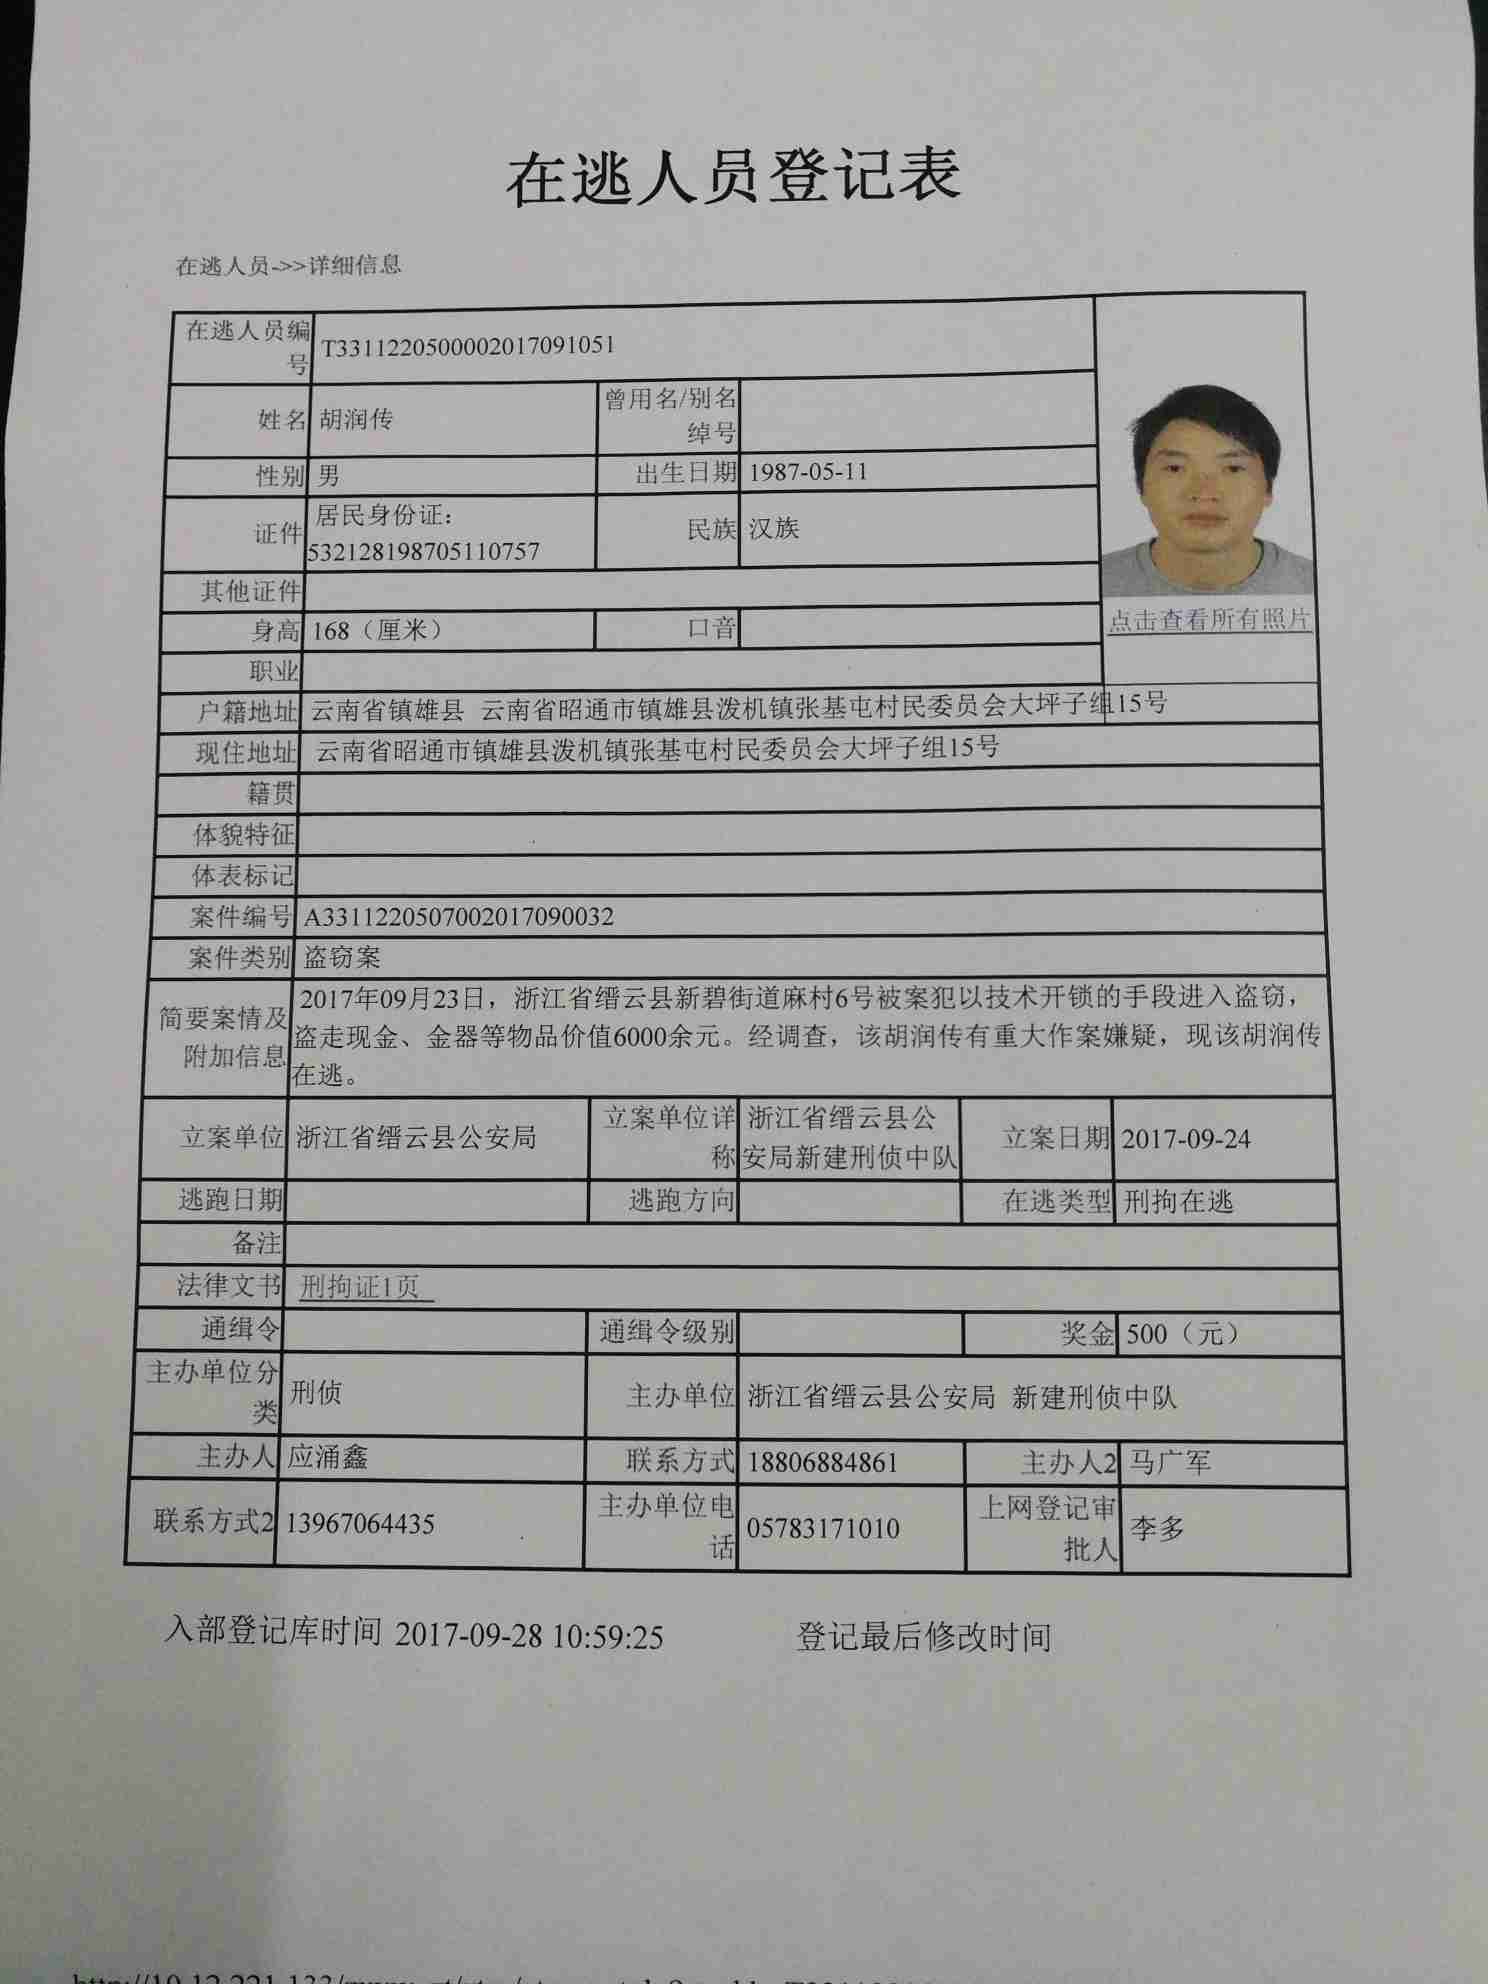 在逃人员登记表
在逃人员->>详细信息
在逃人员编
号
T3311220500002017091051
姓名 胡润传
曾用名/别名
绰号
性别 男 出生日期 1987-05-11
证件
居民身份证:
532128198705110757
民族 汉族
其他证件
身高 168（厘米） 口音
点击查看所有照片
职业
户籍地址 云南省镇雄县 云南省昭通市镇雄县泼机镇张基屯村民委员会大坪子组15号
现住地址 云南省昭通市镇雄县泼机镇张基屯村民委员会大坪子组15号
籍贯
体貌特征
体表标记
案件编号 A3311220507002017090032
案件类别 盗窃案
简要案情及
附加信息
2017年09月23日，浙江省缙云县新碧街道麻村6号被案犯以技术开锁的手段进入盗窃，
盗走现金、金器等物品价值6000余元。经调查，该胡润传有重大作案嫌疑，现该胡润传
在逃。
立案单位 浙江省缙云县公安局
立案单位详
称
浙江省缙云县公
安局新建刑侦中队
立案日期 2017-09-24
逃跑日期 逃跑方向 在逃类型 刑拘在逃
备注
法律文书 刑拘证1页
通缉令 通缉令级别 奖金 500（元）
主办单位分
类
刑侦
主办单位 浙江省缙云县公安局 新建刑侦中队
主办人 应涌鑫 联系方式 18806884861 主办人2 马广军
联系方式2 13967064435
主办单位电
话
05783171010
上网登记审
批人
李多
入部登记库时间 2017-09-28 10:59:25 登记最后修改时间